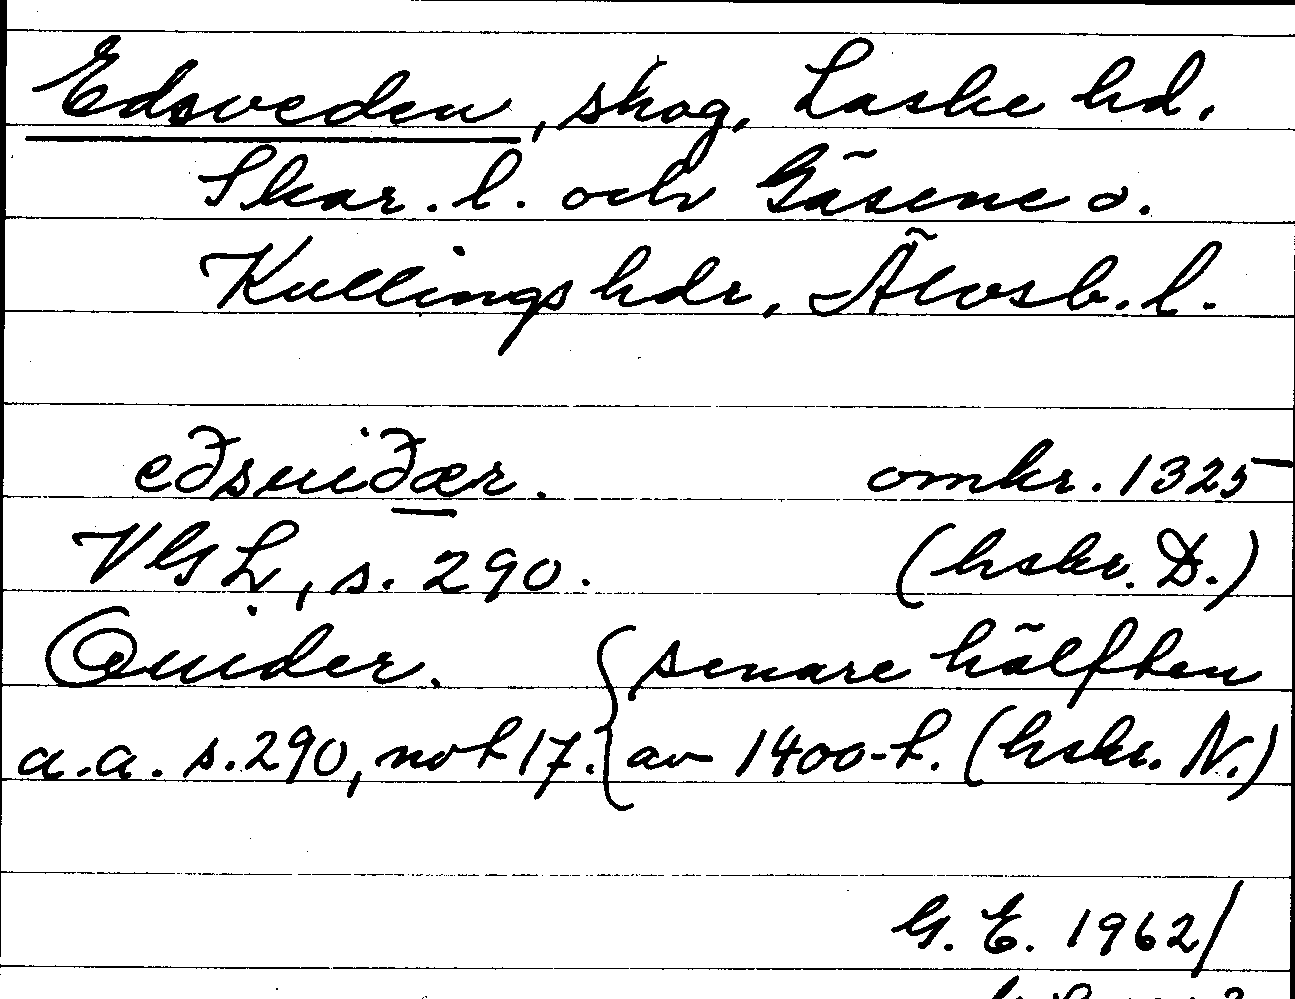 Edsveden, skog, Laske hd.
Skar. l. och Gäsene o.
Kullings hdr, Älvsb. l.
eðsuiðær. omkr. 1325
VGL, s. 290. (hskr. D.)
senare hälften
a.a. s. 290, not 17. av 1400-t. (hskr. N.)
G. E. 1962/